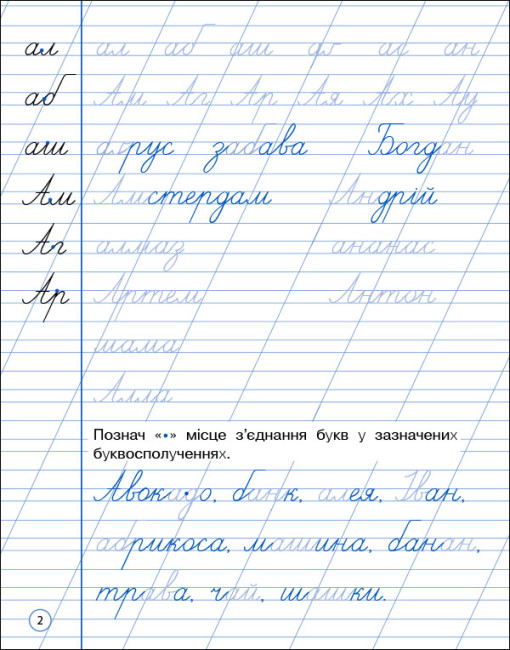 ал ал аб аш аг ас ан
аб Ам Аг Ар Ая Ах Ау
аш агрус забава Богдан
Ам Амстердам Андрій
Аг алмаз ананас
Ар Артем Антон
мама
Алла
Познач «•» місце з’єднання букв у зазначених
буквосполученнях.
Авокадо, банк, алея, Іван,
абрикоса, машина, банан,
трава, чай, шашки.
2